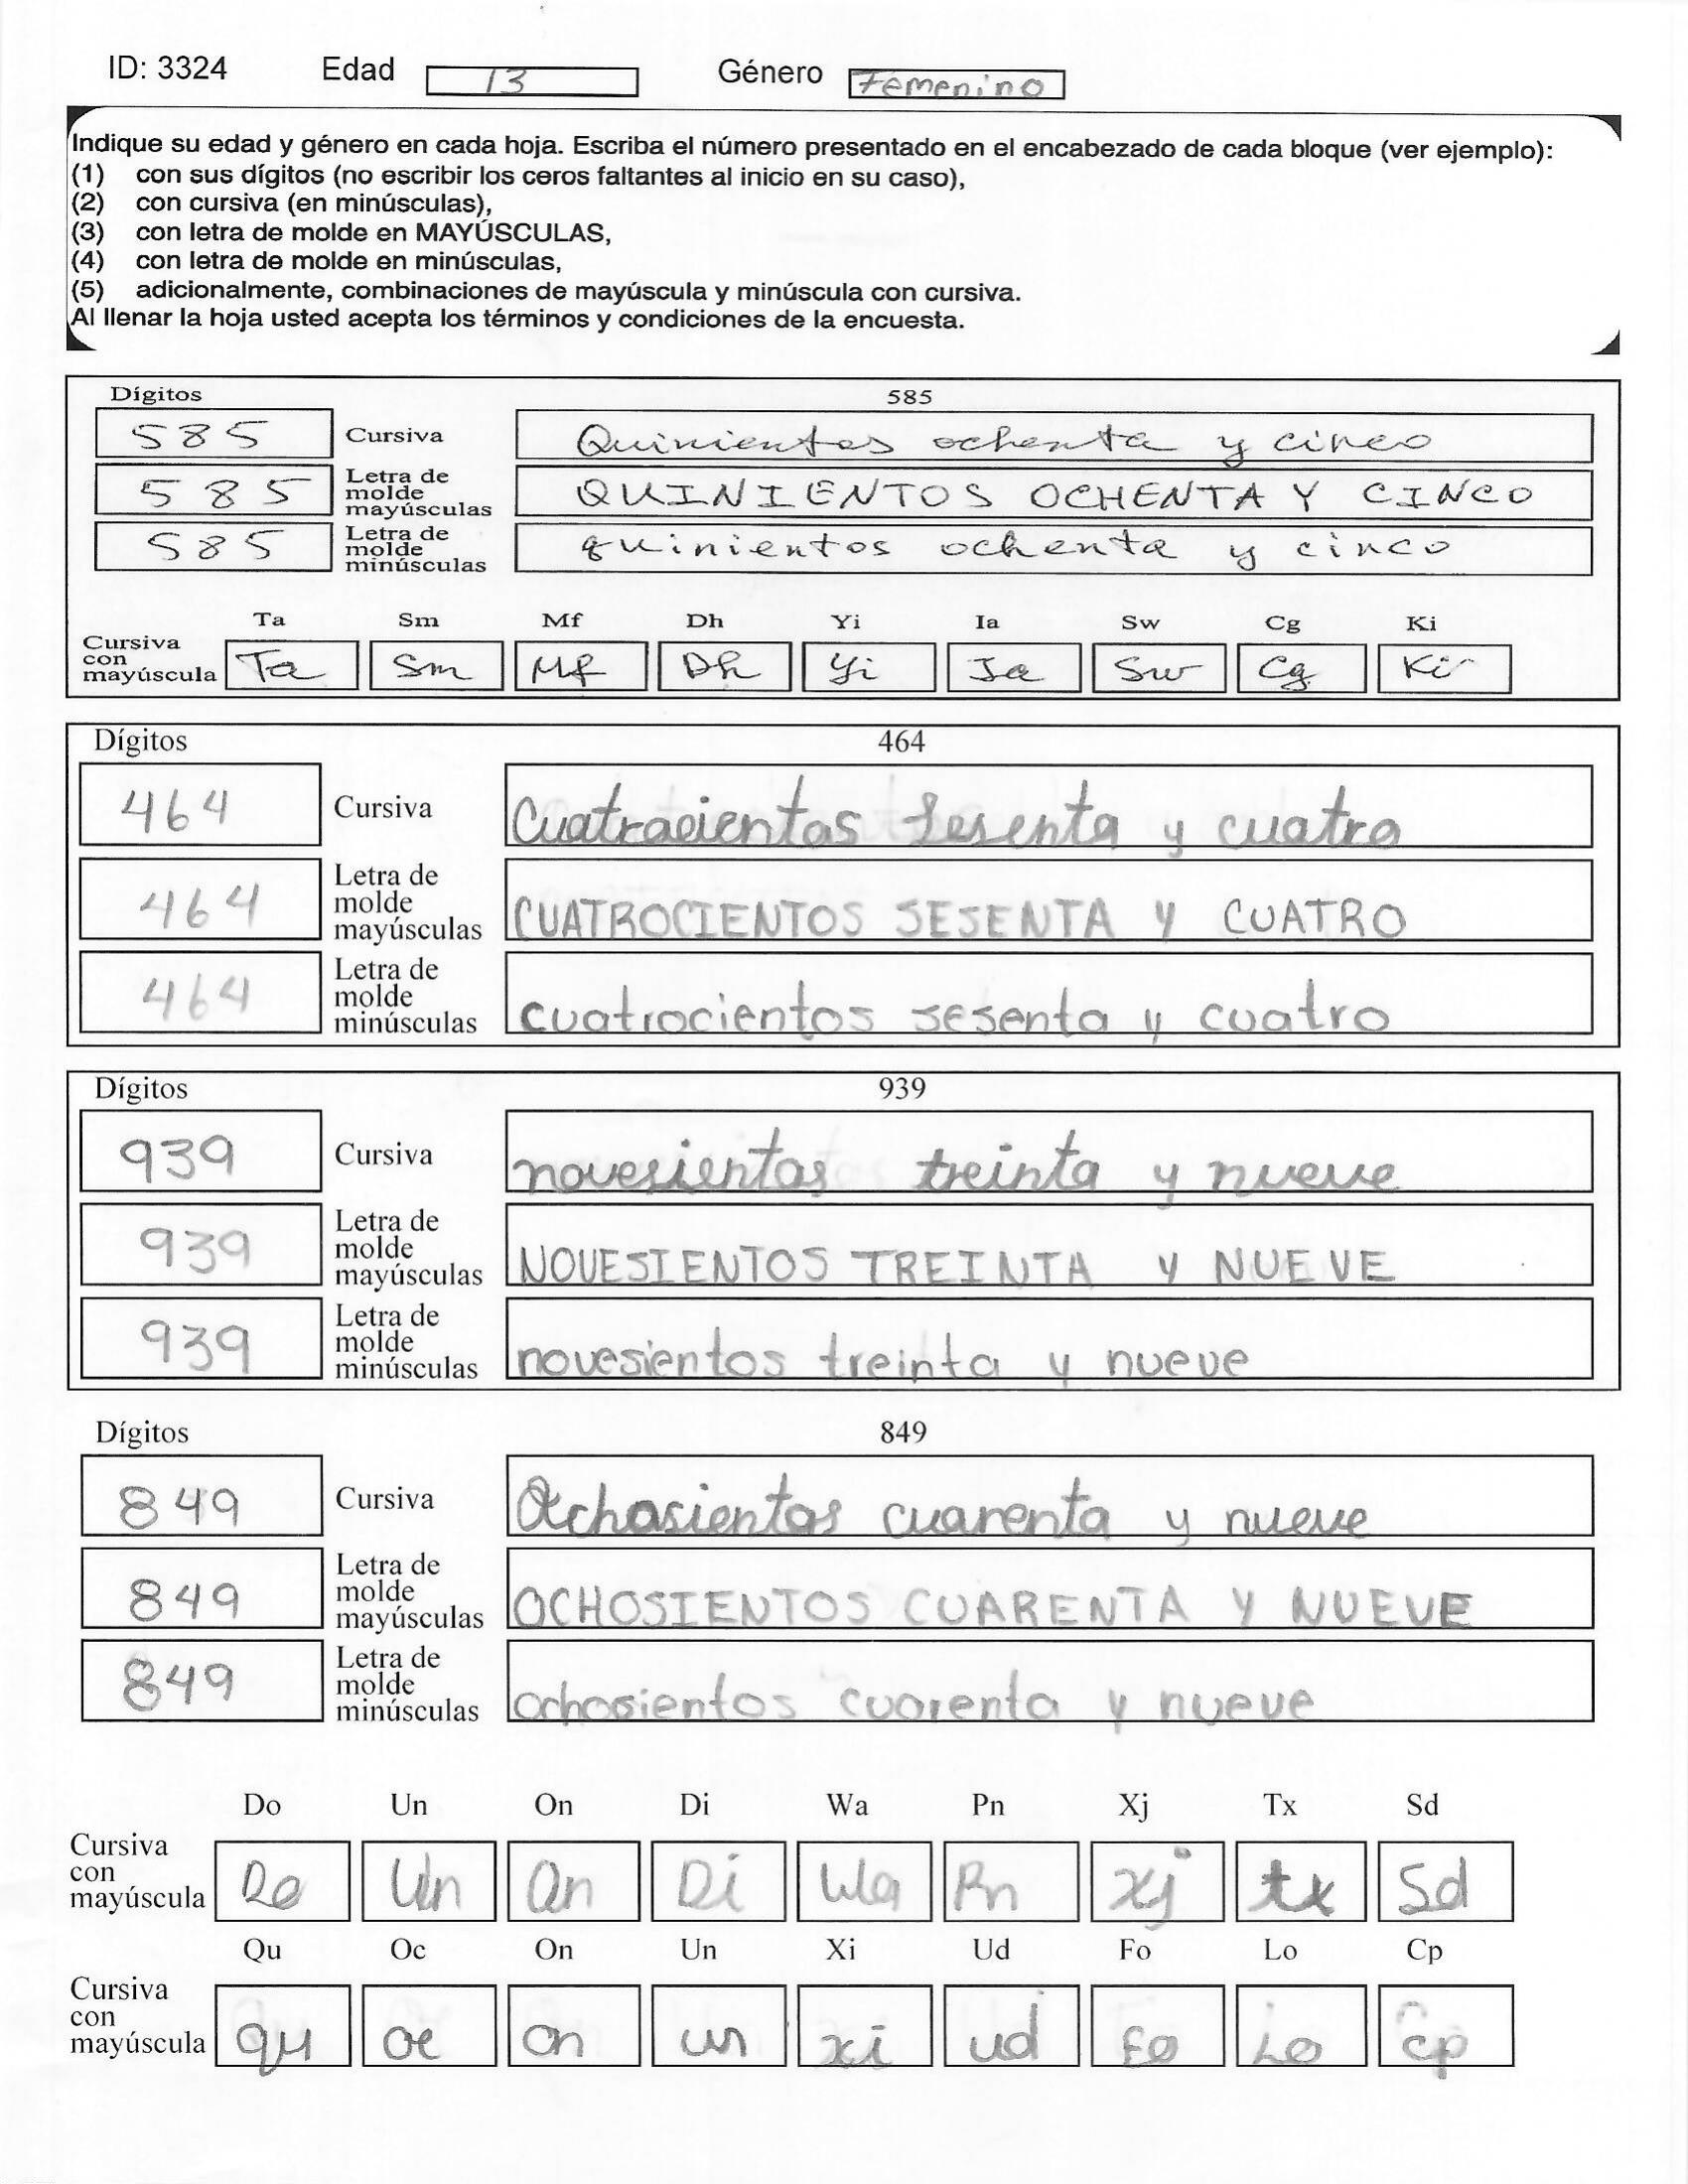 ID: 3324 Edad 13 Género Femenino
Indique su edad y género en cada hoja. Escriba el número presentado en el encabezado de cada bloque (ver ejemplo):
(1) con sus dígitos (no escribir los ceros faltantes al inicio en su caso),
(2) con cursiva (en minúsculas),
(3) con letra de molde en MAYÚSCULAS,
(4) con letra de molde en minúsculas,
(5) adicionalmente, combinaciones de mayúscula y minúscula con cursiva.
Al llenar la hoja usted acepta los términos y condiciones de la encuesta.
Dígitos 585
585 Cursiva Quinientos ochenta y cinco
585 Letra de molde mayúsculas QUINIENTOS OCHENTA Y CINCO
585 Letra de molde minúsculas quinientos ochenta y cinco
Ta Sm Mf Dh Yi Ia Sw Cg Ki
Cursiva con mayúscula Ta Sm Mf Dh Yi Ia Sw Cg Ki
Dígitos 464
464 Cursiva Cuatrocientos Sesenta y cuatro
464 Letra de molde mayúsculas CUATROCIENTOS SESENTA Y CUATRO
464 Letra de molde minúsculas cuatrocientos sesenta y cuatro
Dígitos 939
939 Cursiva novesientos treinta y nueve
939 Letra de molde mayúsculas NOVESIENTOS TREINTA Y NUEVE
939 Letra de molde minúsculas novesientos treinta y nueve
Dígitos 849
849 Cursiva Ochosientos cuarenta y nueve
849 Letra de molde mayúsculas OCHOSIENTOS CUARENTA Y NUEVE
849 Letra de molde minúsculas ochosientos cuarenta y nueve
Do Un On Di Wa Pn Xj Tx Sd
Cursiva con mayúscula Do Un On Di Wa Pn Xj tx Sd
Qu Oc On Un Xi Ud Fo Lo Cp
Cursiva con mayúscula qu oc on un xi ud Fo Lo cp